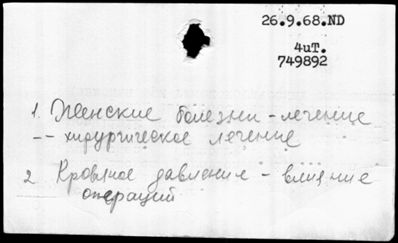 26.9.68.ND
4иТ.
749892
1. Женские болезни - лечение
-- хирургическое лечение
2 Кровяное давление - влияние
операций